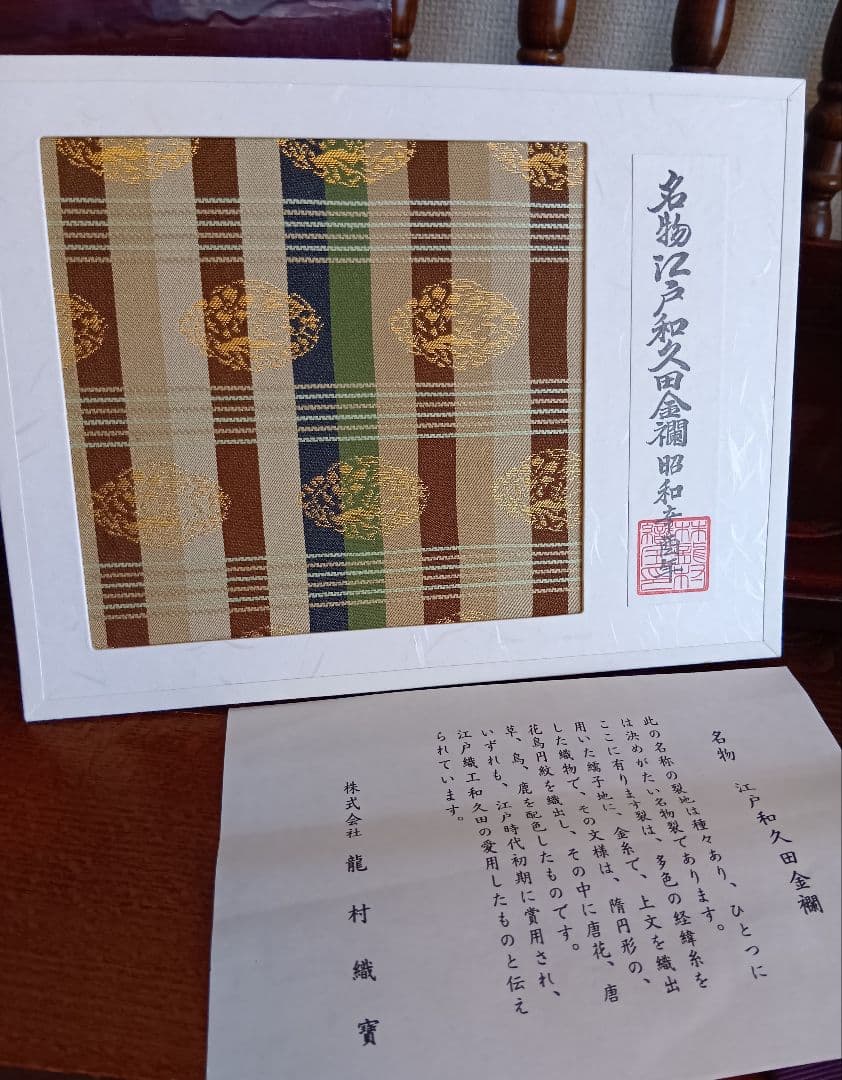 名物江戸和久田金襴 昭和辛酉年
名物 江戸和久田金襴
此の名称の裂地は種々あり、ひとつに
は決めがたい名物裂であります。
ここに有ります裂は、多色の経緯糸を
用いた繻子地に、金糸で、上文を織出
した織物で、その文様は、隋円形の、
花鳥円紋を織出し、その中に唐花、唐
草、鳥、鹿を配色したものです。
いずれも、江戸時代初期に賞用され、
江戸織工和久田の愛用したものと伝え
られています。
株式会社 龍村織寶